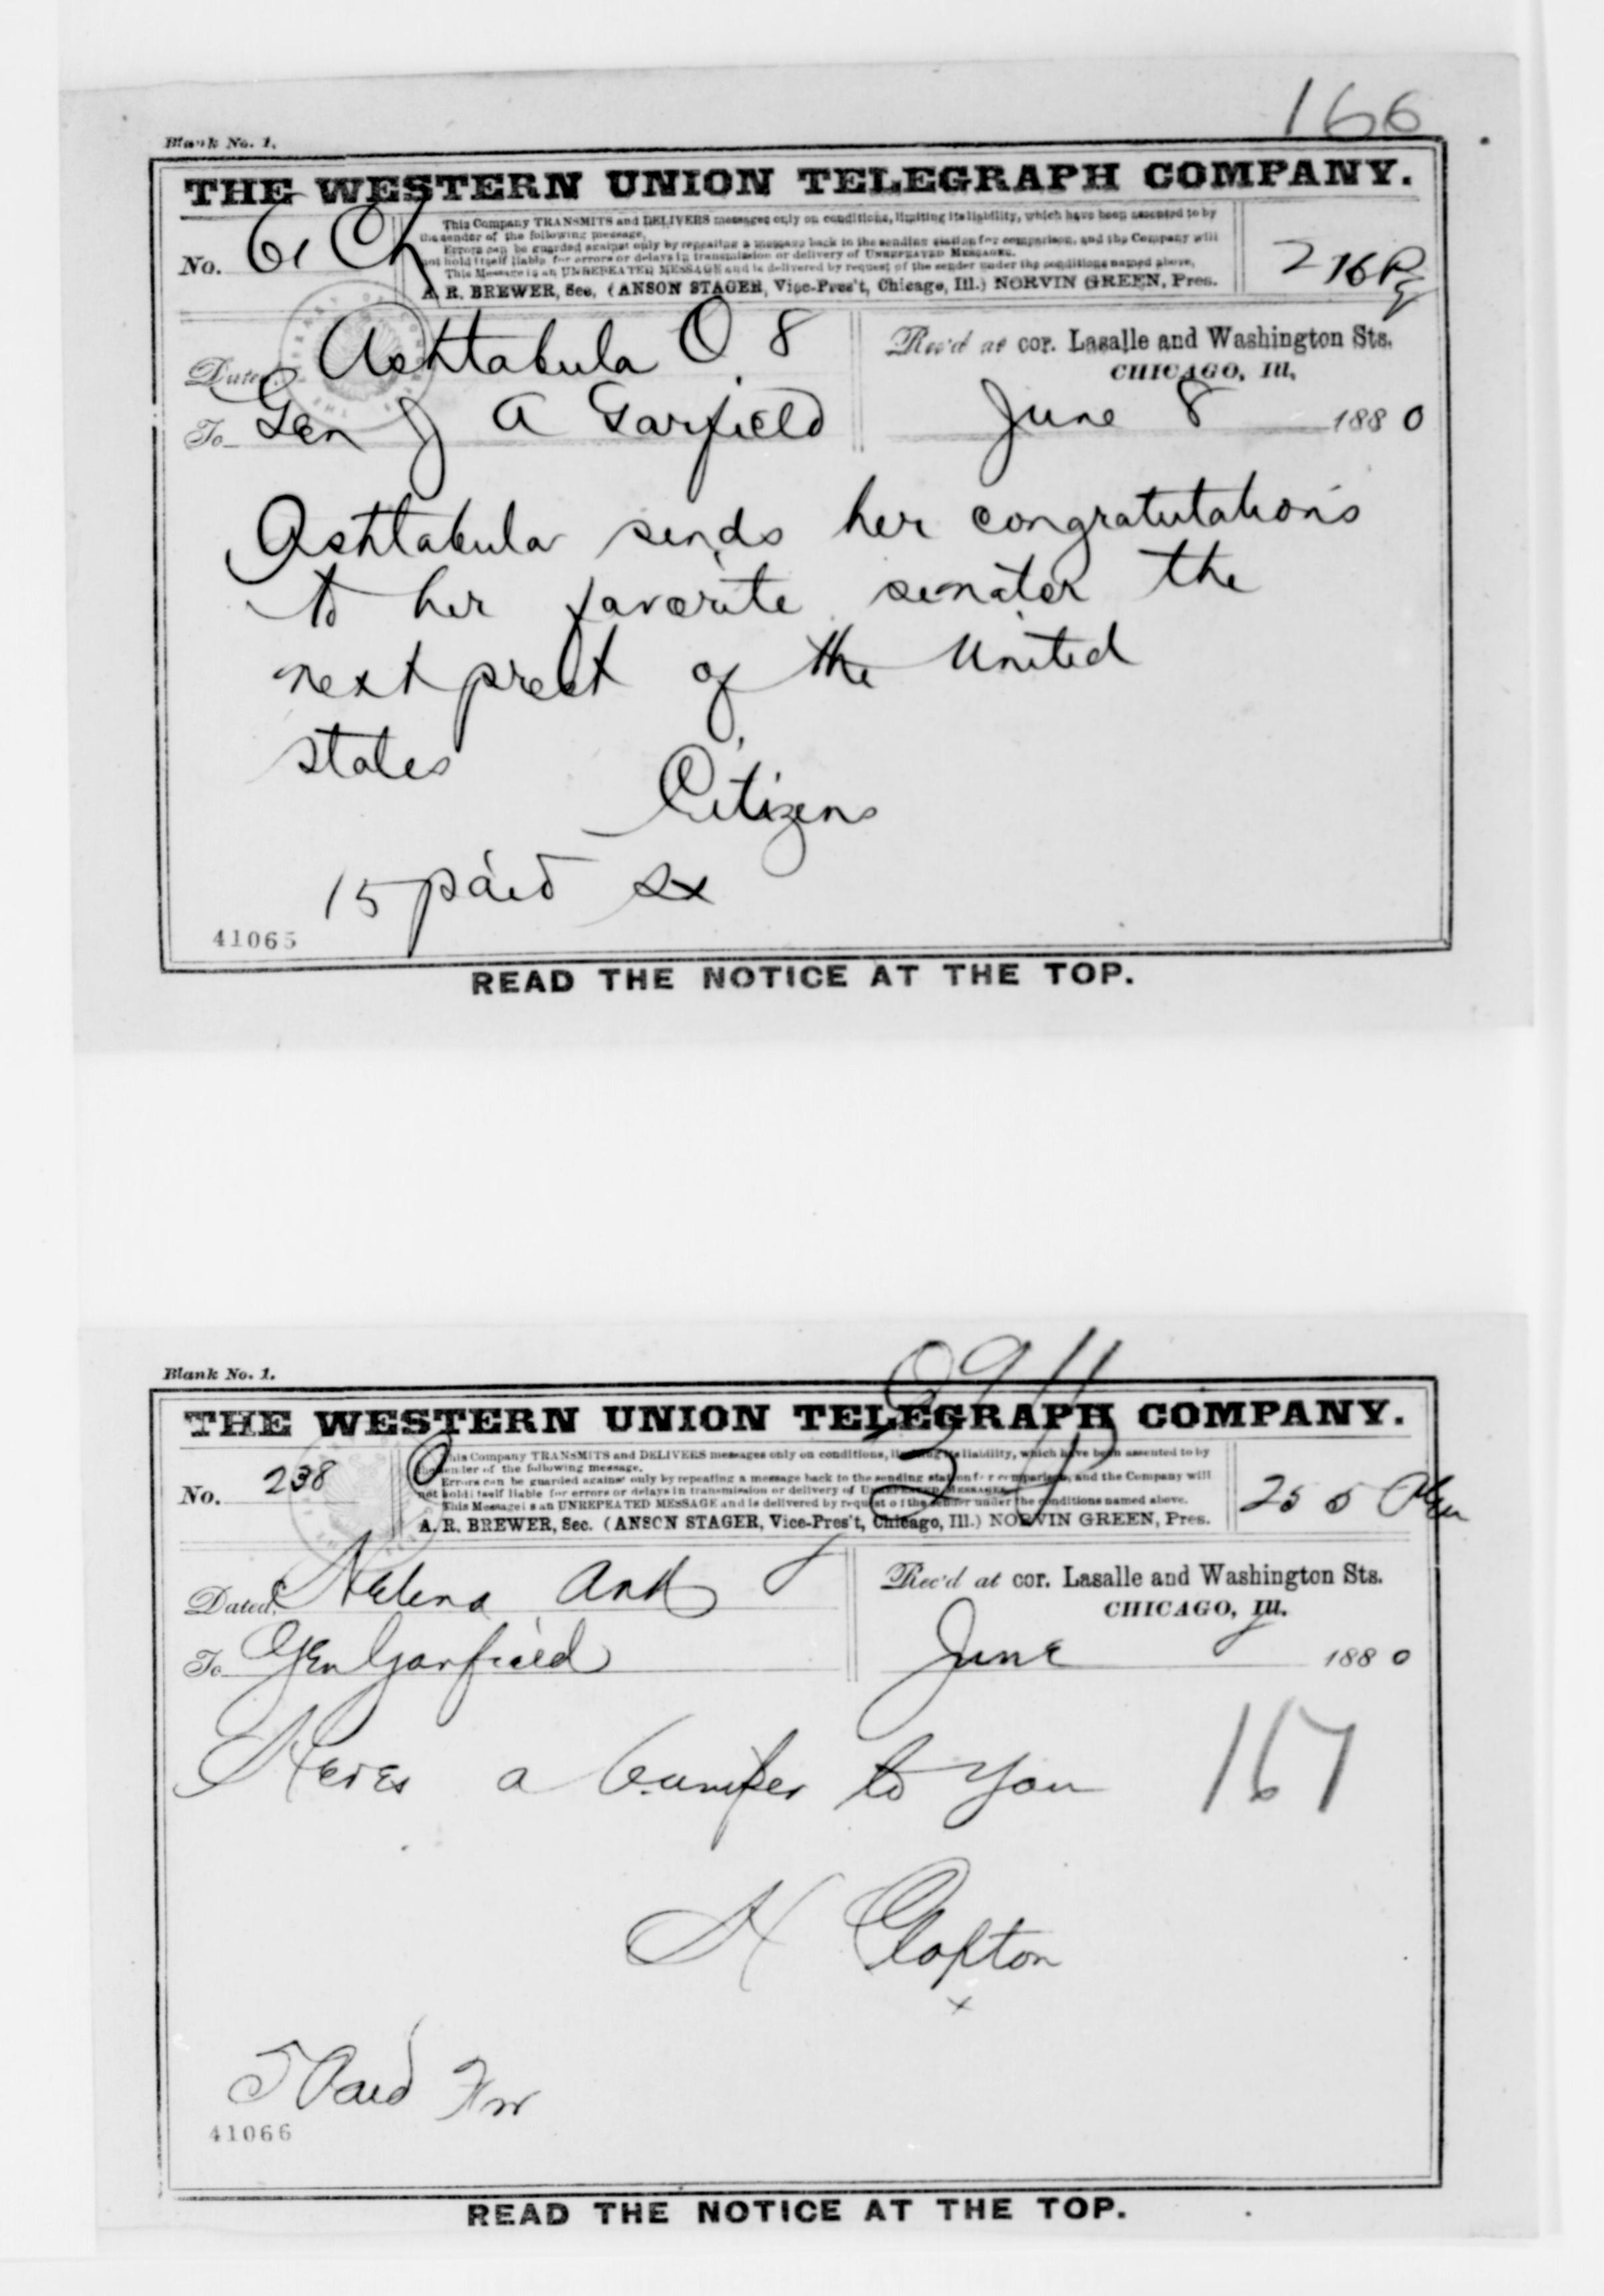 166
Blank No. 1.
THE WESTERN UNION TELEGRAPH COMPANY.
This Company TRANSMITS and DELIVERS messages only on conditions, limiting its liability, which have been assented to by
the sender of the following message.
Errors can be guarded against only by repeating a message back to the sending station for comparison, and the Company will
not hold itself liable for errors or delays in transmission or delivery of UNREPEATED MESSAGES.
This Message is an UNREPEATED MESSAGE and is delivered by request of the sender under the conditions named above.
A. R. BREWER, Sec. (ANSON STAGER, Vice-Pres't, Chicago, Ill.) NORVIN GREEN, Pres.
No. 61 Ch
216 P
Dated, Ashtabula O. 8
Rec'd at cor. Lasalle and Washington Sts.
CHICAGO, Ill.
To Gen J A Garfield
June 8 1880
Ashtabula sends her congratutations
to her favorite senator the
next prest of the United
states
Citizens
15 paid sx
41065
READ THE NOTICE AT THE TOP.
Blank No. 1.
THE WESTERN UNION TELEGRAPH COMPANY.
This Company TRANSMITS and DELIVERS messages only on conditions, limiting its liability, which have been assented to by
the sender of the following message.
Errors can be guarded against only by repeating a message back to the sending station for comparison, and the Company will
not hold itself liable for errors or delays in transmission or delivery of UNREPEATED MESSAGES.
This Message is an UNREPEATED MESSAGE and is delivered by request of the sender under the conditions named above.
A. R. BREWER, Sec. (ANSON STAGER, Vice-Pres't, Chicago, Ill.) NORVIN GREEN, Pres.
No. 238
255
Dated, Helena Ark 8
Rec'd at cor. Lasalle and Washington Sts.
CHICAGO, Ill.
To Gen Garfield
June 1880
Heres a bumper to you
167
H Clopton
x
5 Paid
41066
READ THE NOTICE AT THE TOP.